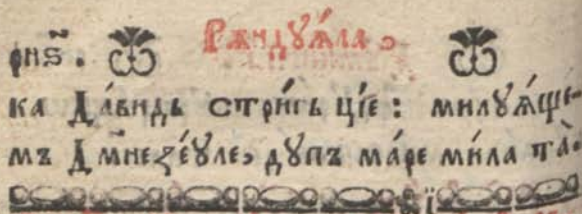 Рѫндꙋѧ́ла.
фнѕ҃.
ка Да́видь стри́гь ціе: милꙋѧ́ще-
мъ Дм҃незе́ꙋле, дꙋпъ ма́ре ми́ла та̀.